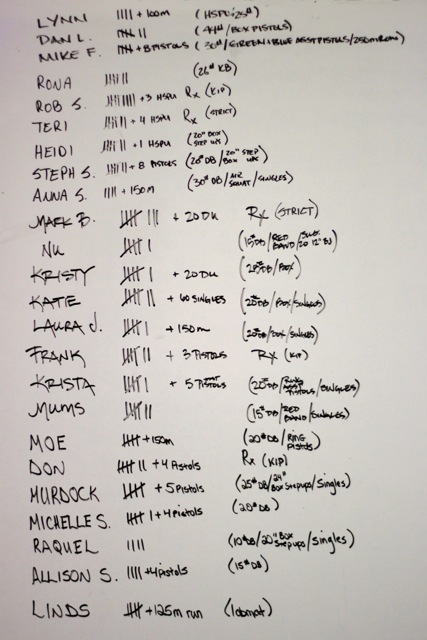 LYNN |||| + 100m (HSPU-25#)
DAN L. 𝍸 || (44#/BOX PISTOLS)
MIKE F. 𝍸 + 8 PISTOLS (30#/GREEN+BLUE ASST PISTOLS/250m ROW)
RONA 𝍸 || (26# KB)
ROB S. + 3 HSPU Rx (KIP)
TERI + 4 HSPU Rx (STRICT)
HEIDI + 1 HSPU (20" BOX STEP UPS)
STEPH S. + 8 PISTOLS (20# DB/20" STEP BOX UPS)
ANNA S. |||| + 150m (30# DB/AIR SQUAT/SINGLES)
MARK B. 𝍸 ||| + 20 DU Rx (STRICT)
NU 𝍸 | (15# DB/RED BAND/ 20 12" BJ)
KRISTY 𝍸 | + 20 DU (25# DB/BOX)
KATIE 𝍸 || + 60 SINGLES (20# DB/BOX/SINGLES)
LAURA J. 𝍸 | + 150m (20# DB/BOX/SINGLES)
FRANK 𝍸 || + 3 PISTOLS Rx (KIP)
KRISTA 𝍸 | + 5 PISTOLS (20# DB/ PISTOLS/SINGLES)
MUMS 𝍸 || (15# DB/RED BAND/SINGLES)
MOE 𝍸 + 150m (20# DB/RING PISTOLS)
DON 𝍸 || + 4 Pistols Rx (KIP)
MURDOCK 𝍸 + 5 Pistols (25# DB/24" BOX Step ups/Singles)
MICHELLE S. 𝍸 | + 4 pistols (20# DB)
RAQUEL |||| (10# DB/20" Box Step ups/Singles)
ALLISON S. |||| + 4 pistols (15# DB)
LINDS 𝍸 + 125m run (1 abmat)